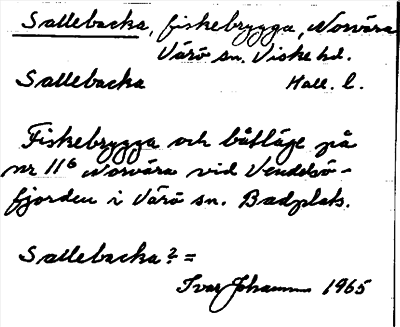 Sallebacka, fiskebrygga, Norvära
Värö sn. Viske hd.
Sallebacka Hall. l.
Fiskebrygga och båtläge på
nr 11⁶ Norvära vid Vendelsö-
fjorden i Värö sn. Badplats.
Sallebacka? =
Ivar Johansson 1965